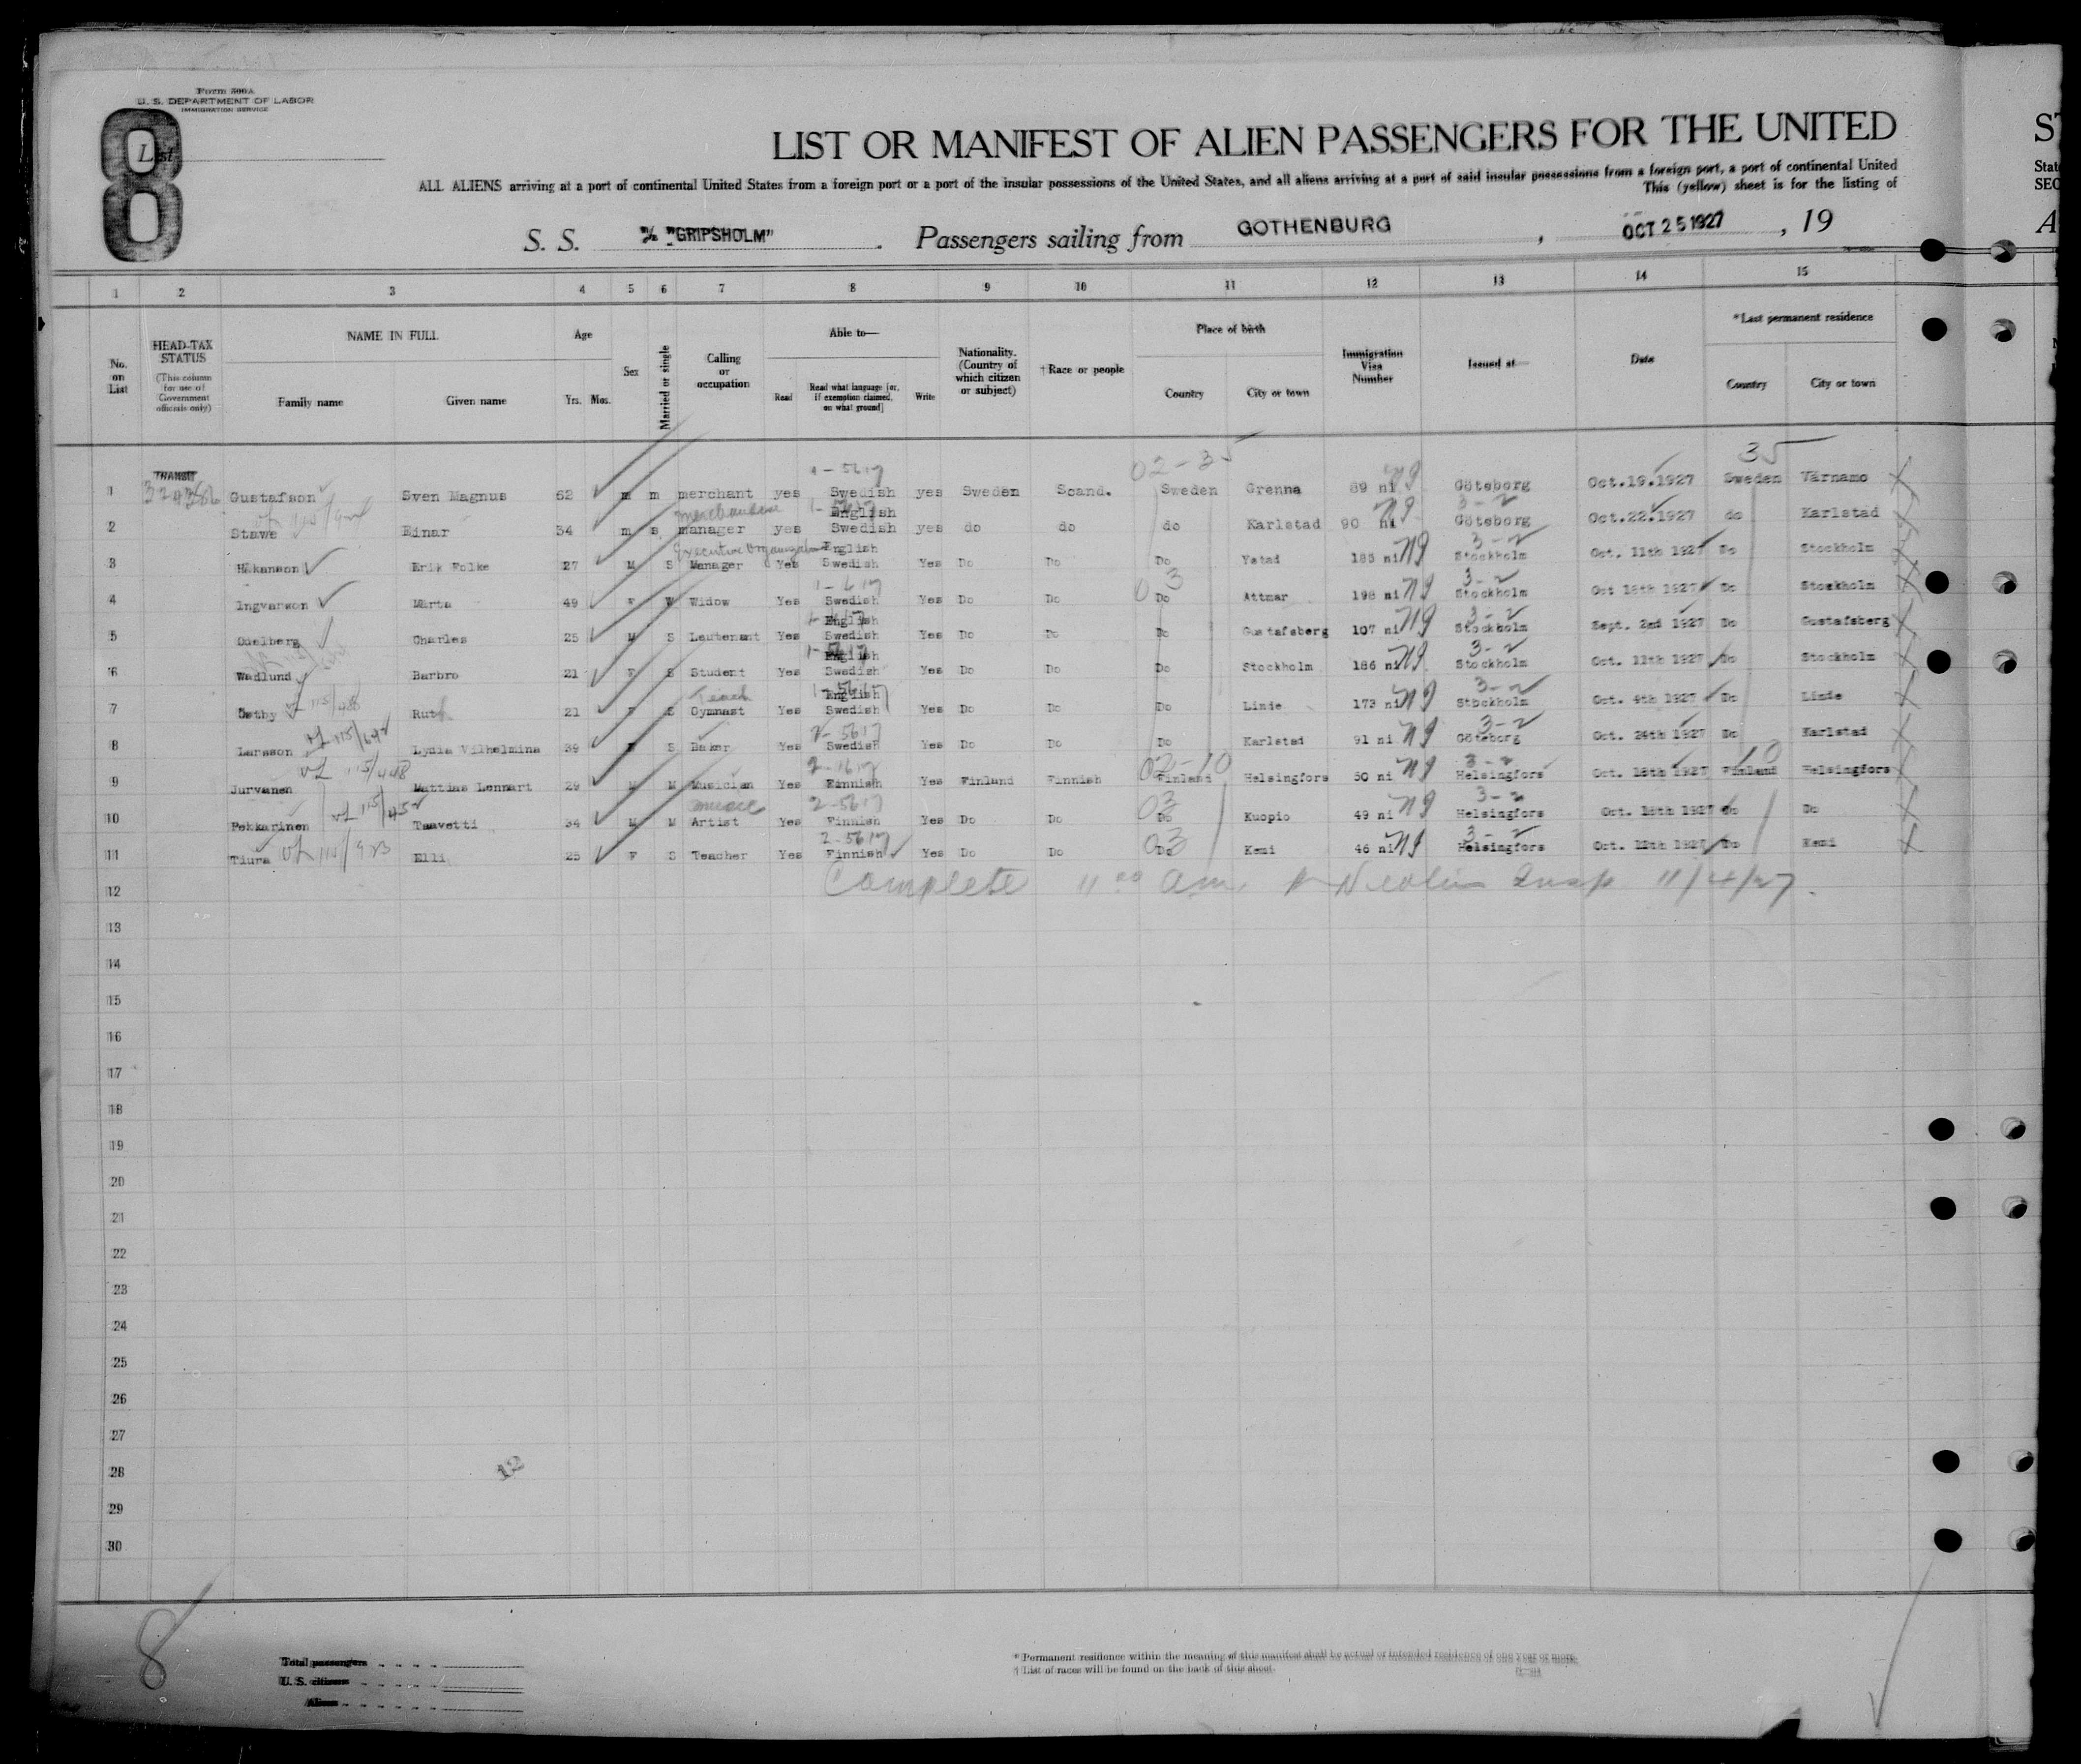 Form 500A
U. S. DEPARTMENT OF LABOR
IMMIGRATION SERVICE
8
List
LIST OR MANIFEST OF ALIEN PASSENGERS FOR THE UNITED
ST
ALL ALIENS arriving at a port of continental United States from a foreign port or a port of the insular possessions of the United States, and all aliens arriving at a port of said insular possessions from a foreign port, a port of continental United
Stat
This (yellow) sheet is for the listing of
SEC
S. S. M/S "GRIPSHOLM". Passengers sailing from GOTHENBURG, OCT 25 1927, 19
A
1 2 3 4 5 6 7 8 9 10 11 12 13 14 15
No. on List
HEAD-TAX STATUS (This column for use of Government officials only)
NAME IN FULL
Family name Given name
Age
Yrs. Mos.
Sex
Married or single
Calling or occupation
Able to—
Read Read what language [or, if exemption claimed, on what ground] Write
Nationality. (Country of which citizen or subject)
†Race or people
Place of birth
Country City or town
Immigration Visa Number
Issued at—
Date
*Last permanent residence
Country City or town
TRANSIT 1-5617 02-35 35
1 Gustafson Sven Magnus 62 m m merchant yes Swedish yes Sweden Scand. Sweden Grenna 89 ni Göteborg Oct.19.1927 Sweden Tärnamo
English 3-2
2 Stawe Einar 34 m s manager yes Swedish yes do do do Karlstad 90 ni Göteborg Oct.22.1927 do Karlstad
Executive English 3-2
3 Håkanson Erik Folke 27 M S Manager Yes Swedish Yes Do Do Do Ystad 185 ni Stockholm Oct. 11th 1927 Do Stockholm
03 3-2
4 Ingvarson Märta 49 F W Widow Yes Swedish Yes Do Do Do Attmar 198 ni Stockholm Oct 18th 1927 Do Stockholm
English 3-2
5 Odelberg Charles 25 M S Leutenant Yes Swedish Yes Do Do Do Gustafsberg 107 ni Stockholm Sept. 2nd 1927 Do Gustafsberg
English 3-2
6 Wedlund Barbro 21 F S Student Yes Swedish Yes Do Do Do Stockholm 186 ni Stockholm Oct. 11th 1927 Do Stockholm
Teach English 3-2
7 Östby Ruth 21 F S Gymnast Yes Swedish Yes Do Do Do Linde 173 ni Stockholm Oct. 4th 1927 Do Linde
2-5617 3-2
8 Larsson Lydia Vilhelmina 39 F S Baker Yes Swedish Yes Do Do Do Karlstad 91 ni Göteborg Oct. 24th 1927 Do Karlstad
02-10 3-2 10
9 Jurvanen Mattias Lennart 29 M M Musician Yes Finnish Yes Finland Finnish Finland Helsingfors 50 ni Helsingfors Oct. 18th 1927 Finland Helsingfors
music 2-5617 03 3-2
10 Pekkarinen Taavetti 34 M M Artist Yes Finnish Yes Do Do Do Kuopio 49 ni Helsingfors Oct. 18th 1927 Do Do
2-5617 03 3-2
11 Tiura Elli 25 F S Teacher Yes Finnish Yes Do Do Do Kemi 46 ni Helsingfors Oct. 12th 1927 Do Kemi
12 Complete 11 00 am Insp 11/4/27.
13
14
15
16
17
18
19
20
21
22
23
24
25
26
27
28
12
29
30
8
Total passengers
U. S. citizens
Aliens
* Permanent residence within the meaning of this manifest shall be actual or intended residence of one year or more.
† List of races will be found on the back of this sheet.